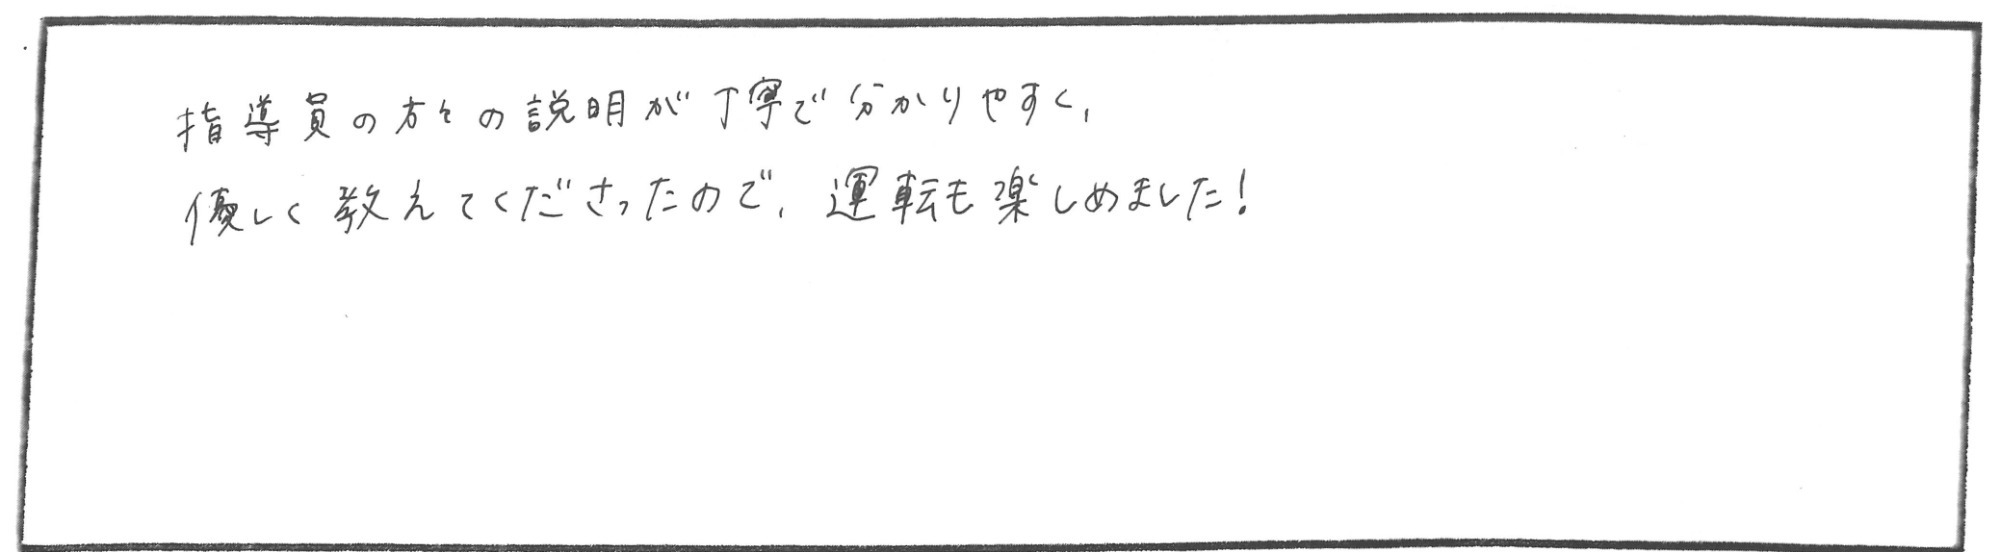 指導員の方々の説明が丁寧で分かりやすく、
優しく教えてくださったので、運転も楽しめました!